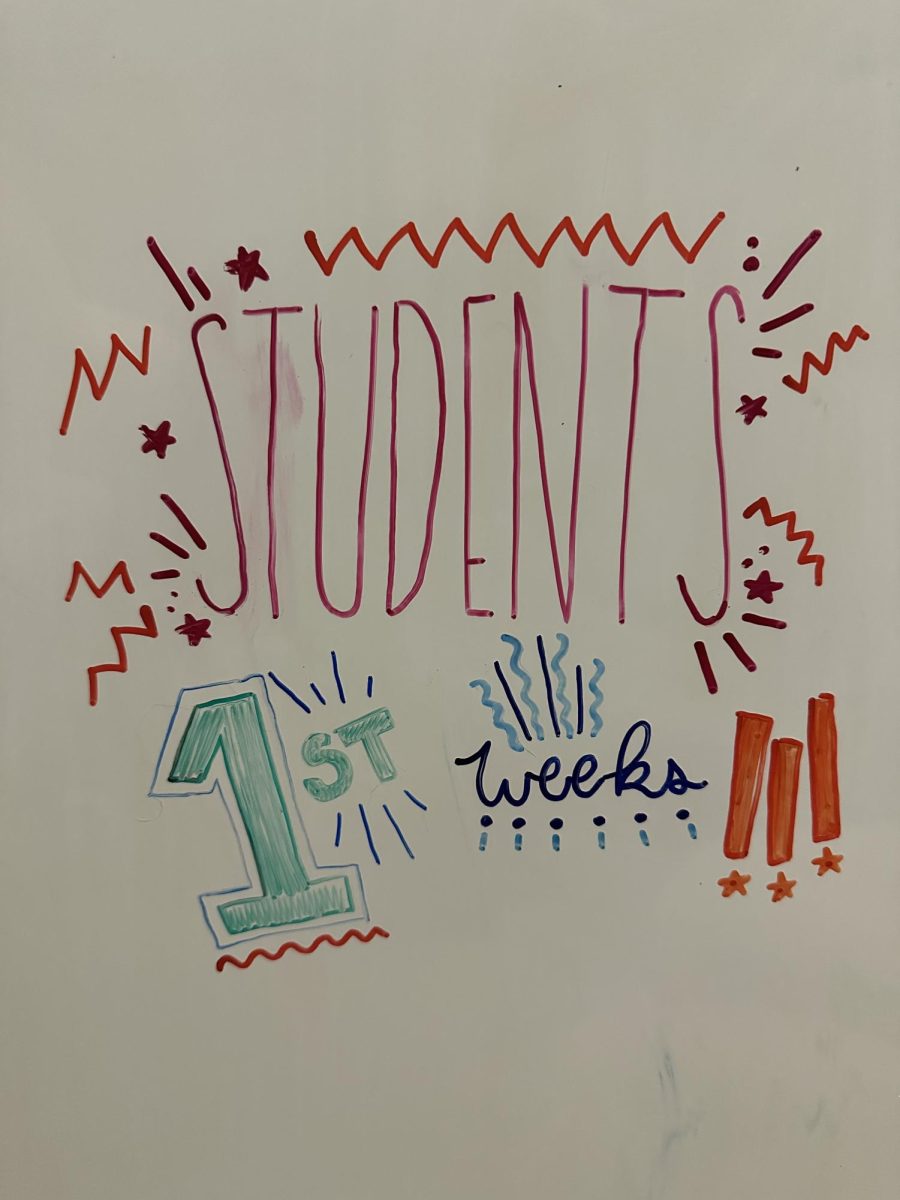 STUDENTS
1ST weeks !!!